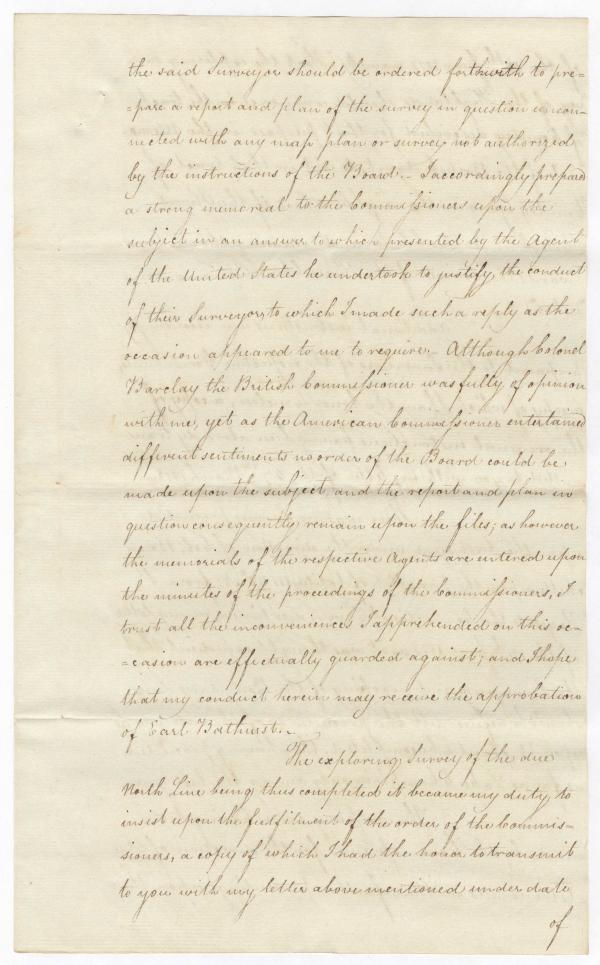 the said Surveyor should be ordered forthwith to pre=
=pare a report and plan of the survey in question uncon=
nected with any map plan or survey not authorized
by the instructions of the Board.- I accordingly prepared
a strong memorial to the Commissioners upon the
subject in an answer to which presented by the Agent
of the United States he undertook to justify the conduct
of their Surveyors, to which I made such a reply as the
occasion appeared to me to require.- Although Colonel
Barclay the British Commissioner was fully of opinion
with me, yet as the American Commissioner entertained
different sentiments no order of the Board could be
made upon the subject and the report and plan in
question consequently remain upon the files; as however
the memorials of the respective Agents are entered upon
the minutes of the proceedings of the Commissioners, I
trust all the inconveniences I apprehended on this oc=
=casion are effectually guarded against; and I hope
that my conduct herein may receive the approbation
of Earl Bathurst.-
The exploring Survey of the due
North Line being thus completed it became my duty to
insist upon the fulfilment of the order of the Commis=
sioners, a copy of which I had the honor to transmit
to you with my letter above mentioned under date
of